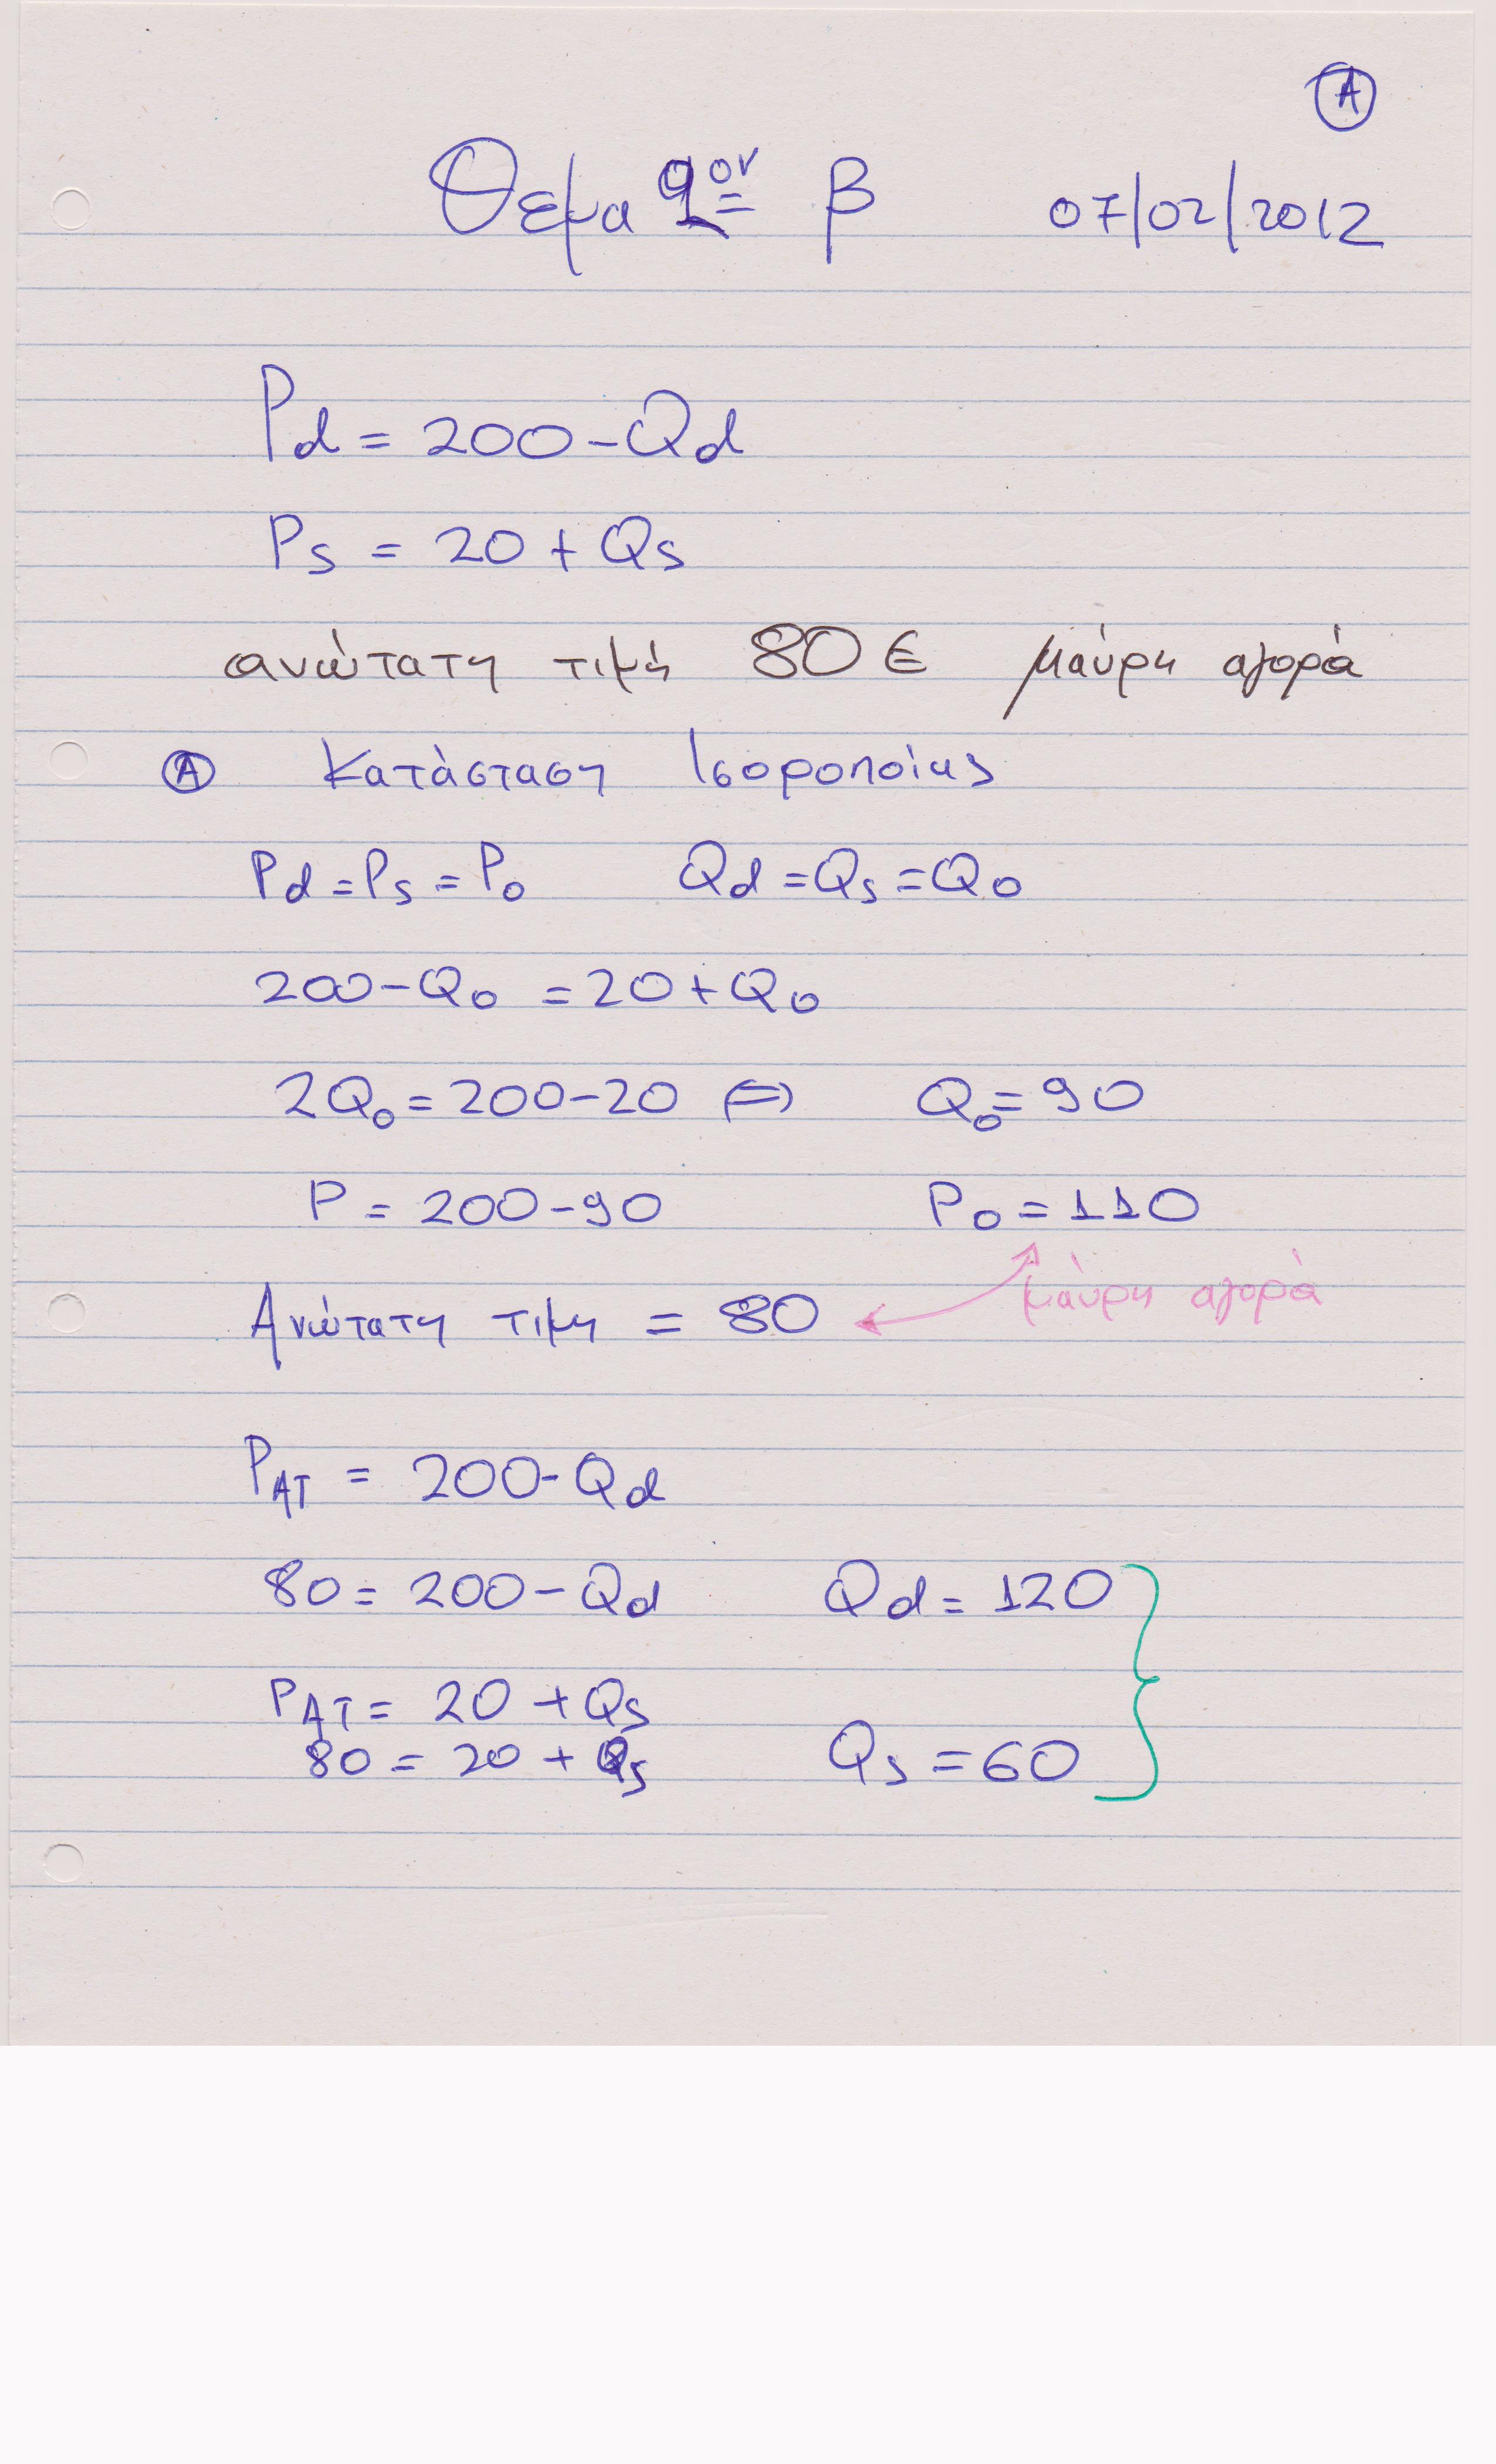 Α
Θέμα 2ον β 07/02/2012
Pd = 200 - Qd
Ps = 20 + Qs
ανώτατη τιμή 80 € μαύρη αγορά
Α Κατάσταση Ισοροποίας
Pd = Ps = Po Qd = Qs = Qo
200 - Qo = 20 + Qo
2Qo = 200 - 20 ⇔ Qo = 90
P = 200 - 90 Po = 110
μαύρη αγορά
Ανώτατη τιμη = 80
PAT = 200 - Qd
80 = 200 - Qd Qd = 120
PAT = 20 + Qs
80 = 20 + Qs Qs = 60